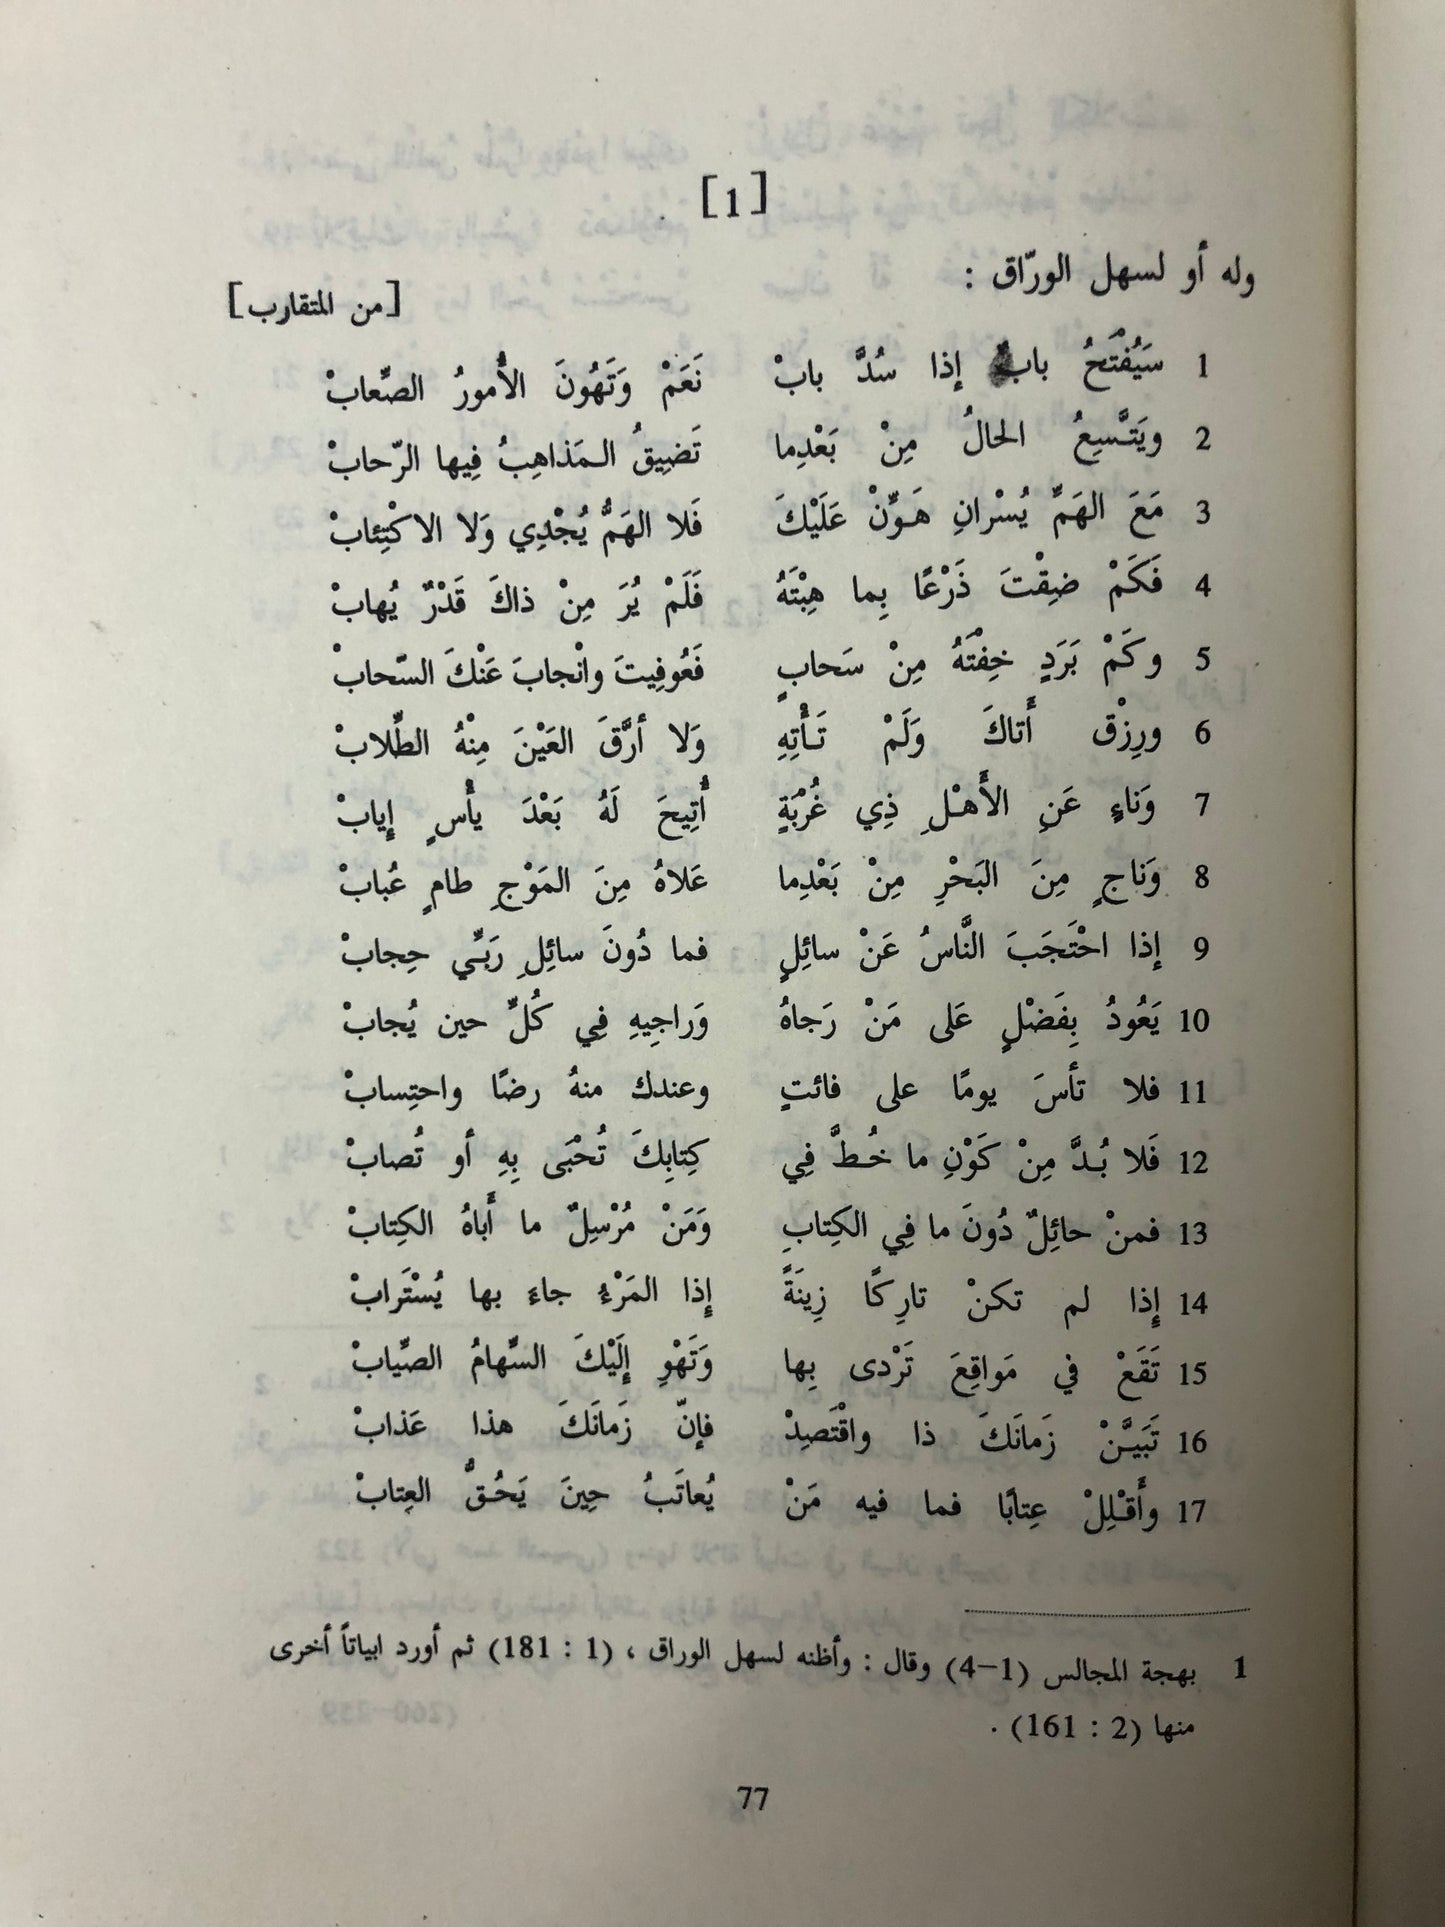 [1]
وله أو لسهل الورّاق :
[من المتقارب]
1 سَيُفْتَحُ بابٌ إذا سُدَّ بابْ نَعَمْ وَتَهُونَ الأُمورُ الصِّعابْ
2 ويَتَّسِعُ الحالُ مِنْ بَعْدِما تَضِيقُ المَذاهِبُ فِيها الرّحابْ
3 مَعَ الهَمِّ يُسْرانِ هَوِّنْ عَلَيْكَ فَلا الهَمُّ يُجْدِي وَلا الاكْتِئابْ
4 فَكَمْ ضِقْتَ ذَرْعًا بِما هِبْتَهُ فَلَمْ يُرَ مِنْ ذاكَ قَدْرٌ يُهابْ
5 وكَمْ بَرَدٍ خِفْتَهُ مِنْ سَحابٍ فَعُوفِيتَ وانْجابَ عَنْكَ السّحابْ
6 ورِزْق أَتاكَ وَلَمْ تَأْتِهِ وَلا أرَّقَ العَيْنَ مِنْهُ الطِّلابْ
7 وَناءٍ عَنِ الأَهْلِ ذِي غُرْبَةٍ أُتِيحَ لَهُ بَعْدَ يأْسٍ إِيابْ
8 وَناجٍ مِنَ البَحْرِ مِنْ بَعْدِما عَلاهُ مِنَ المَوْجِ طامٍ عُبابْ
9 إذا احْتَجَبَ النَّاسُ عَنْ سائِلٍ فما دُونَ سائِلِ رَبِّي حِجابْ
10 يَعُودُ بِفَضْلٍ عَلى مَنْ رَجاهُ وَراجِيهِ فِي كُلِّ حين يُجابْ
11 فلا تأسَ يومًا على فائتٍ وعندك منهُ رضًا واحتِسابْ
12 فَلا بُدَّ مِنْ كَوْنِ ما خُطَّ فِي كِتابِكَ تُحْبَى بِهِ أو تُصابْ
13 فمنْ حائِلٌ دُونَ ما فِي الكِتابِ وَمَنْ مُرْسِلٌ ما أَباهُ الكِتابْ
14 إِذا لم تكنْ تارِكًا زِينَةً إِذا المَرْءُ جاءَ بها يُسْتَرابْ
15 تَقَعْ في مَواقِعَ تَرْدى بِها وَتَهْوِ إِلَيْكَ السِّهامُ الصِّيابْ
16 تَبَيَّنْ زَمانَكَ ذا واقْتَصِدْ فإنّ زَمانَكَ هذا عَذابْ
17 وأَقْلِلْ عِتابًا فما فيه مَنْ يُعاتَبُ حِينَ يَحُقُّ العِتابْ
1 بهجة المجالس (1–4) وقال : وأظنه لسهل الوراق ، (1 : 181) ثم أورد ابياتاً أخرى
منها (2 : 161) .
77